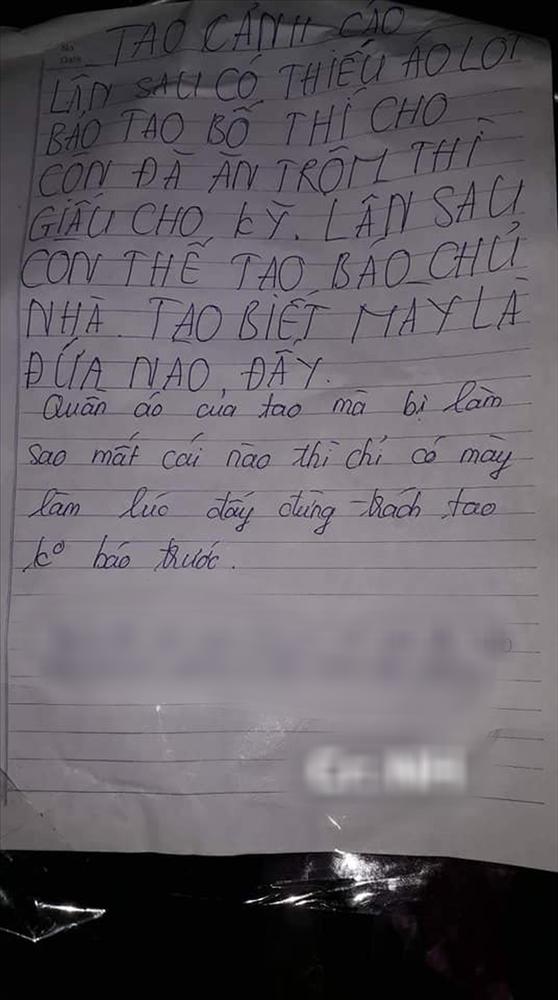 TAO CẢNH CÁO
LẦN SAU CÓ THIẾU ÁO LÓT
BẢO TAO BỐ THÍ CHO
CÒN ĐÃ ĂN TRỘM THÌ
GIẤU CHO KỸ. LẦN SAU
CÒN THẾ TAO BÁO CHỦ
NHÀ. TAO BIẾT MÀY LÀ
ĐỨA NÀO ĐẤY.
Quần áo của tao mà bị làm
sao mất cái nào thì chỉ có mày
làm lúc đấy đừng trách tao
ko báo trước.